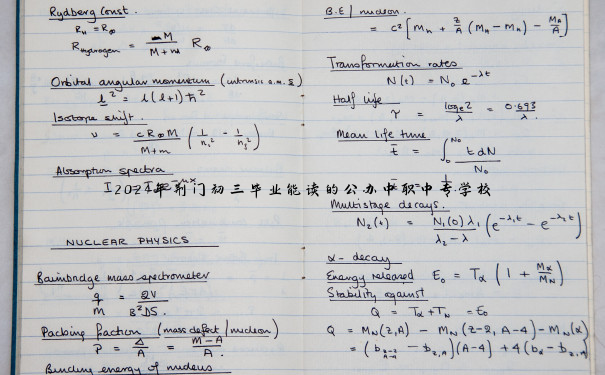 Rydberg Const.
R_H = R_∞
R_Hydrogen = M / (M + m) R_∞
Orbital angular momentum (intrinsic a.m. s)
l² = l(l+1)ħ²
Isotope shift.
ν = c R_∞ M / (M+m) (1/n₁² - 1/n₂²)
Absorption spectra
2024年荆门初三毕业能读的公办中职中专学校
NUCLEAR PHYSICS
Bainbridge mass spectrometer
q/m = 2V / B²DS.
Packing fraction (mass defect / nucleon)
P = Δ/A = (M-A)/A.
Binding energy of nucleus
B.E / nucleon.
= c² [M_n + Z/A (M_H - M_n) - M_A/A]
Transformation rates
N(t) = N₀ e^-λt
Half life
τ = log_e 2 / λ = 0.693 / λ.
Mean life time
t̄ = ∫₀^N₀ t dN / N₀
Multistage decays.
N₂(t) = N₁(0) λ₁ / (λ₂ - λ) (e^-λ₁t - e^-λ₂t)
α - decay
Energy released E₀ = T_α (1 + M_α/M_N)
Stability against
Q = T_α + T_N = E₀
Q = M_N(Z,A) - M_N(Z-2, A-4) - M_N(α)